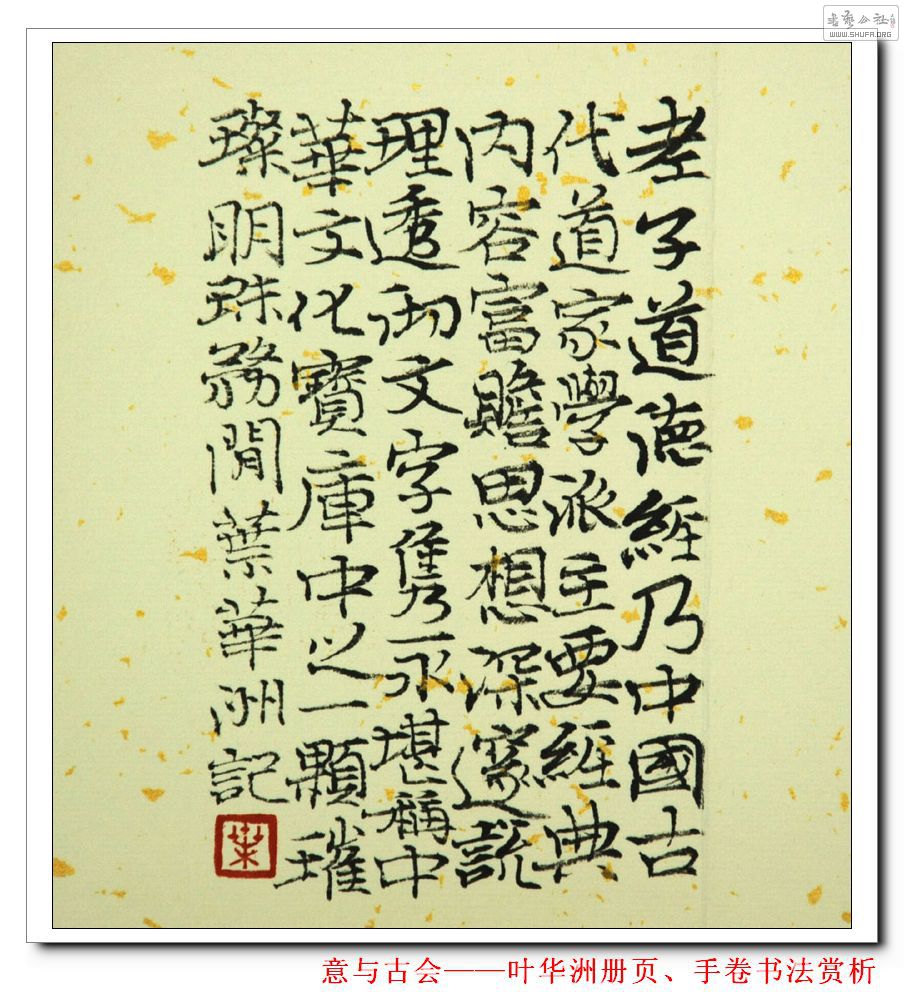 书艺公社
WWW.SHUFA.ORG
老子道德經乃中國古
代道家學派主要經典
内容富贍思想深邃説
理透彻文字雋永堪稱中
華文化寶庫中之一顆璀
璨明珠務閒葉華洲記
意与古会——叶华洲册页、手卷书法赏析